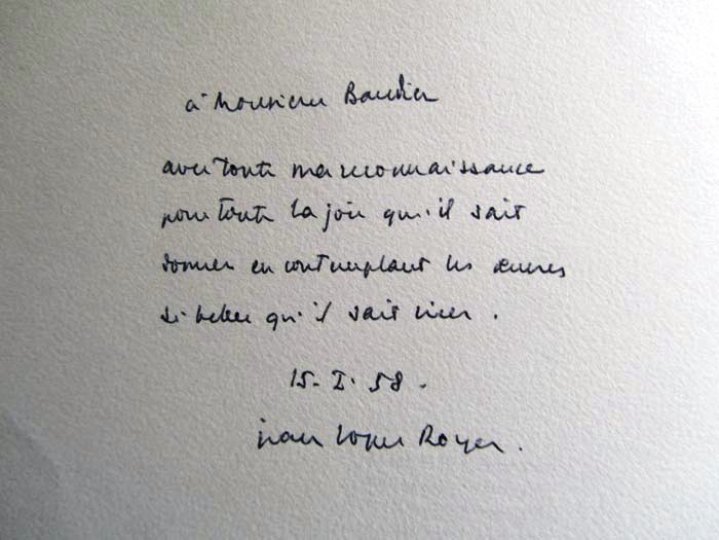 à Monsieur Baudier
avec toute ma reconnaissance
pour toute la joie qu'il sait
donner en contemplant les œuvres
si belles qu'il sait
15-I-58.
Royer.